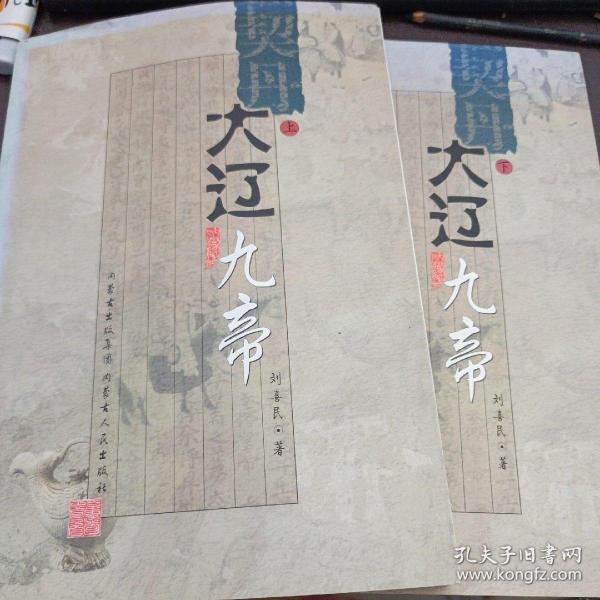 契丹
大辽
上
九帝
刘喜民·著
内蒙古出版集团 内蒙古人民出版社
契丹
大辽
下
九帝
刘喜民·著
孔夫子旧书网
www.kongfz.com